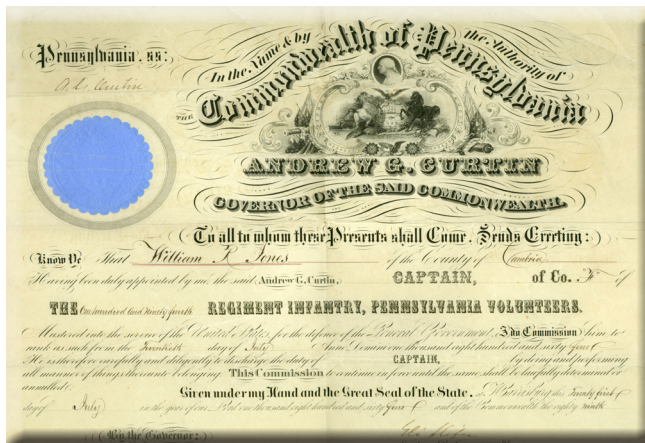 Pennsylvania, ss:
In the Name & by the Authority of
THE Commonwealth of Pennsylvania
A. G. Curtin
ANDREW G. CURTIN
GOVERNOR OF THE SAID COMMONWEALTH.
To all to whom these Presents shall Come, Sends Greeting:
Know Ye That William R. Jones of the County of Cambria
Having been duly appointed by me, the said Andrew G. Curtin, CAPTAIN, of Co. F of
THE One hundred and Ninety fourth REGIMENT INFANTRY, PENNSYLVANIA VOLUNTEERS.
Mustered into the service of the United States for the defence of the General Government, I do Commission him to
rank as such from the Twentieth day of July Anno Domini one thousand eight hundred and sixty four
He is therefore carefully and diligently to discharge the duty of CAPTAIN, by doing and performing
all manner of things thereunto belonging This Commission to continue in force until the same shall be lawfully determined or
annulled.
Given under my Hand and the Great Seal of the State, at Harrisburg this Twenty first
day of July in the year of our Lord one thousand eight hundred and sixty four and of the Commonwealth the eighty ninth
By the Governor: Eli Slifer